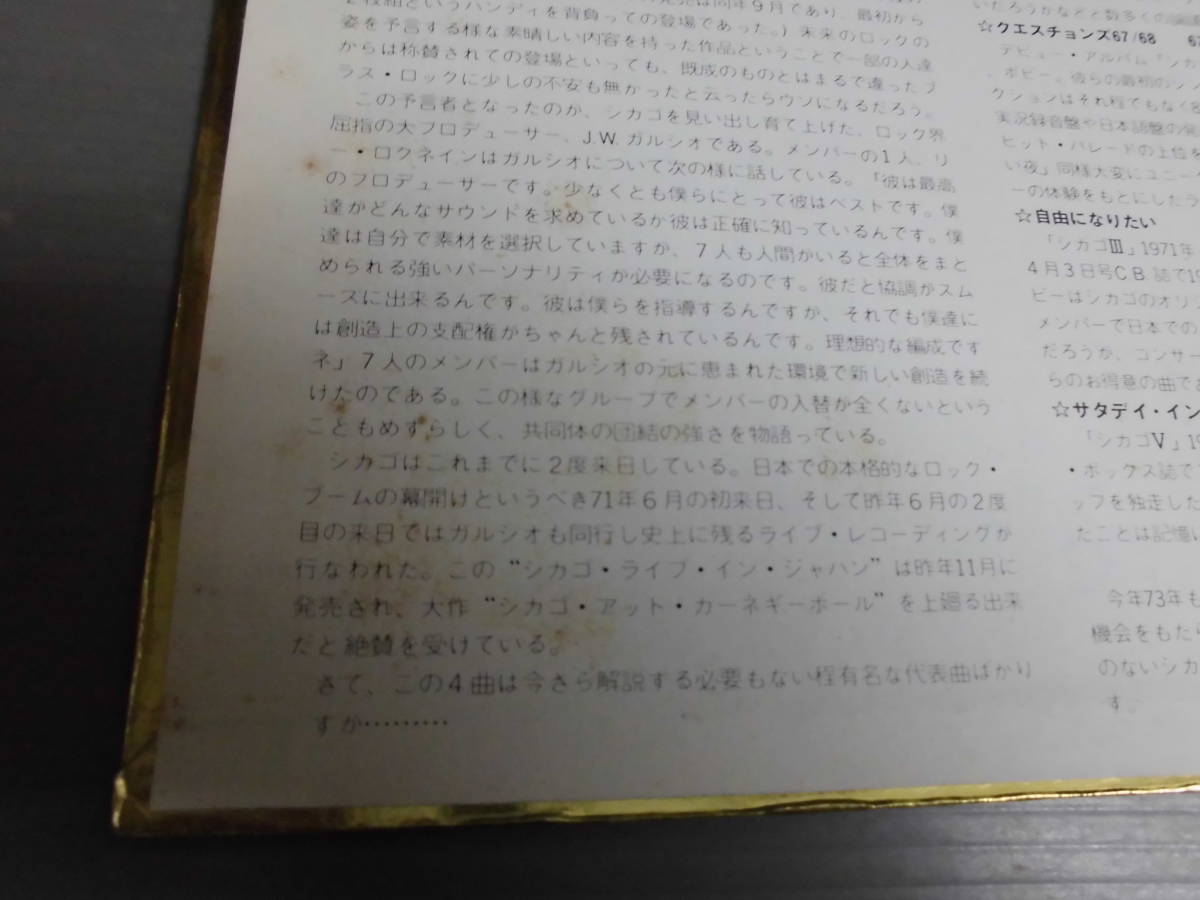 発売は同年9月であり、最初から
2枚組というハンディを背負っての登場であった。)未来のロックの
姿を予言する様な素晴しい内容を持った作品ということで一部の人達
からは称賛されての登場といっても、既成のものとはまるで違ったブ
ラス・ロックに少しの不安も無かったと云ったらウソになるだろう。
この予言者となったのが、シカゴを見い出し育て上げた、ロック界
屈指の大プロデューサー、J.W.ガルシオである。メンバーの1人、リ
ー・ロクネインはガルシオについて次の様に話している。「彼は最高
のプロデューサーです。少なくとも僕らにとって彼はベストです。僕
達がどんなサウンドを求めているか彼は正確に知っているんです。僕
達は自分で素材を選択していますが、7人も人間がいると全体をまと
められる強いパーソナリティが必要になるのです。彼だと協調がスム
ーズに出来るんです。彼は僕らを指導するんですが、それでも僕達に
は創造上の支配権がちゃんと残されているんです。理想的な編成です
ネ」7人のメンバーはガルシオの元に恵まれた環境で新しい創造を続
けたのである。この様なグループでメンバーの入替が全くないという
こともめずらしく、共同体の団結の強さを物語っている。
シカゴはこれまでに2度来日している。日本での本格的なロック・
ブームの幕開けというべき71年6月の初来日、そして昨年6月の2度
目の来日ではガルシオも同行し史上に残るライブ・レコーディングが
行なわれた。この“シカゴ・ライブ・イン・ジャパン”は昨年11月に
発売され、大作“シカゴ・アット・カーネギーホール”を上廻る出来
だと絶賛を受けている。
さて、この4曲は今さら解説する必要もない程有名な代表曲ばかり
すが………
いだろうかなどと数多くの
☆クエスチョンズ67/68 67
デビュー・アルバム「シカ
、ポピー。彼らの最初のシン
クションはそれ程でもなく
実況録音盤や日本語盤の発
ヒット・パレードの上位を
い夜」同様大変にユニーク
ーの体験をもとにしたラ
☆自由になりたい
「シカゴⅢ」1971年
4月3日号CB誌で19
ビーはシカゴのオリ
メンバーで日本での
だろうが、コンサー
らのお得意の曲であ
☆サタデイ・イン
「シカゴⅤ」19
・ボックス誌で
ップを独走した
たことは記憶に
今年73年も
機会をもたら
のないシカ
す。